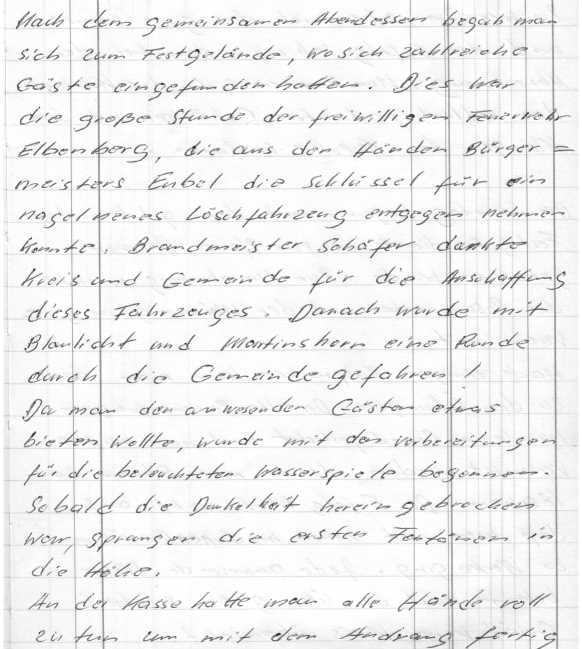 Nach dem gemeinsamen Abendessen begab man
sich zum Festgelände, wo sich zahlreiche
Gäste eingefunden hatten. Dies war
die große Stunde der freiwilligen Feuerwehr
Elbenberg, die aus den Händen Bürger=
meisters Enbel die Schlüssel für ein
nagelneues Löschfahrzeug entgegen nehmen
konnte. Brandmeister Schäfer dankte
Kreis und Gemeinde für die Anschaffung
dieses Fahrzeuges. Danach wurde mit
Blaulicht und Martinshorn eine Runde
durch die Gemeinde gefahren!
Da man den anwesenden Gästen etwas
bieten wollte, wurde mit den vorbereitungen
für die beleuchteten Wasserspiele begonnen.
Sobald die Dunkelheit hereingebrochen
war, sprangen die ersten Fontänen in
die Höhe.
An der Kasse hatte man alle Hände voll
zu tun um mit dem Andrang fertig